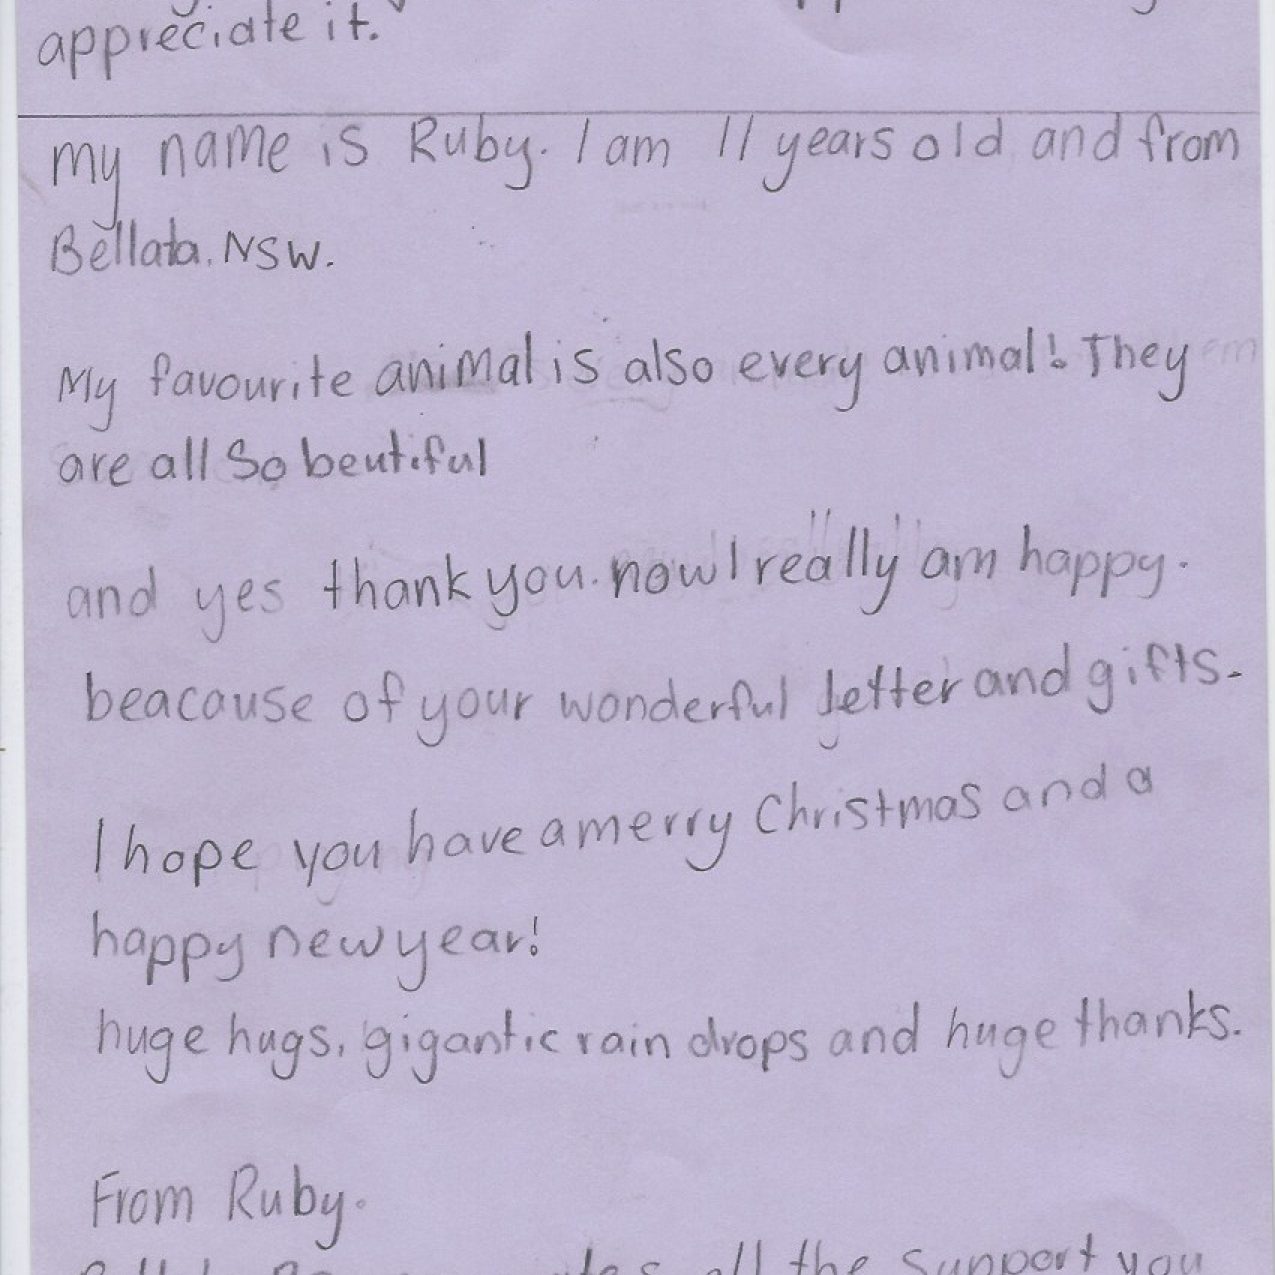 appreciate it.
My name is Ruby. I am 11 years old and from
Bellata. NSW.
My favourite animal is also every animal! They
are all so beutiful
and yes thank you. now I really am happy.
beacause of your wonderful letter and gifts.
I hope you have a merry Christmas and a
happy new year!
huge hugs, gigantic rain drops and huge thanks.
From Ruby.
all the support you